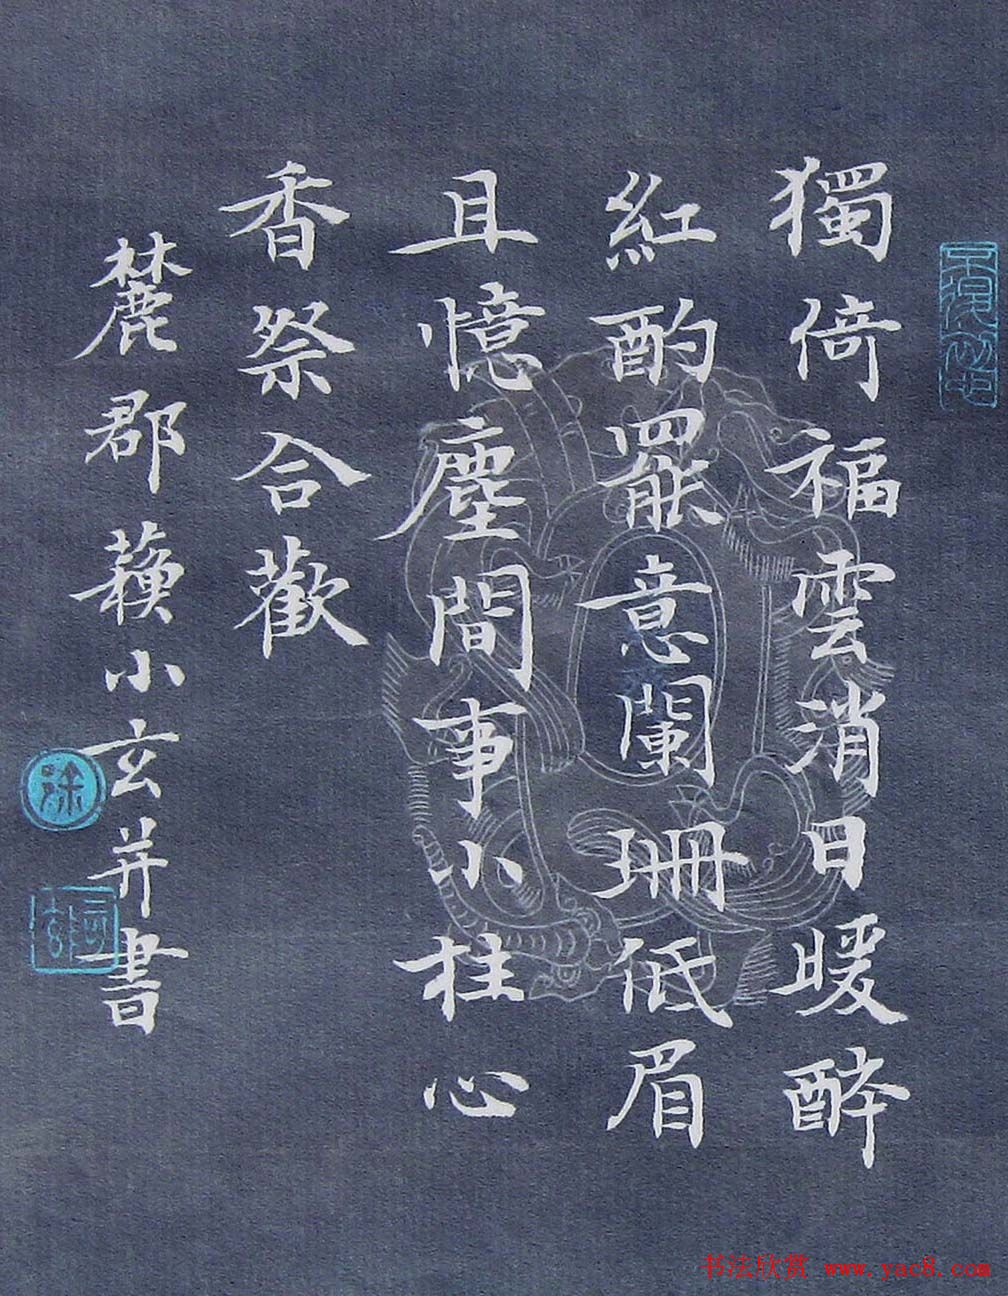 獨倚福雲消日暖醉
紅酌罷意闌珊低眉
且憶塵間事小拄心
香祭合歡
麓郡藾小玄并書
徐
书法欣赏 www.yac8.com